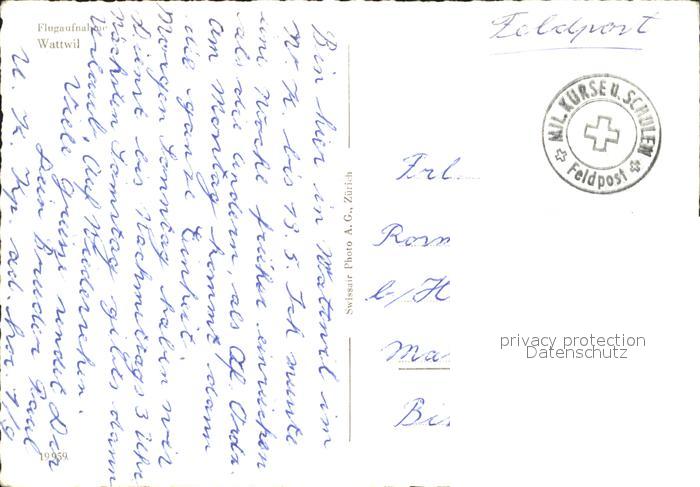 Flugaufnahme
Wattwil
Bin hier in Wattwil im
W. K. bis 13. 5. Ich musste
eine Woche früher einrücken
als die andern, als Of. Ordo.
Am Montag kommt dann
die ganze Einheit.
Morgen Sonntag haben wir
Dienst bis Nachmittags 3 Uhr
Nächsten Samstag gibts dann
Urlaub. Auf Wiedersehen.
Viele Grüsse sendet Dir
Dein Bruder Paul
19959
Swissair Photo A. G., Zürich
Feldpost
MIL. KURSE U. SCHULEN
Feldpost
Frl.
b/ H
privacy protection
Datenschutz